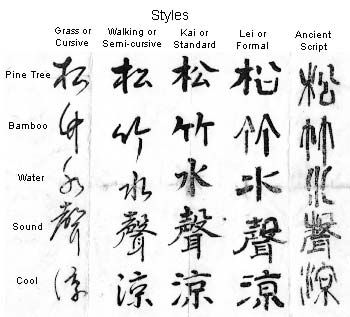 Styles
Grass or Cursive Walking or Semi-cursive Kai or Standard Lei or Formal Ancient Script
Pine Tree 松 松 松 松 松
Bamboo 竹 竹 竹 竹 竹
Water 水 水 水 水 水
Sound 聲 聲 聲 聲 聲
Cool 涼 涼 涼 涼 涼